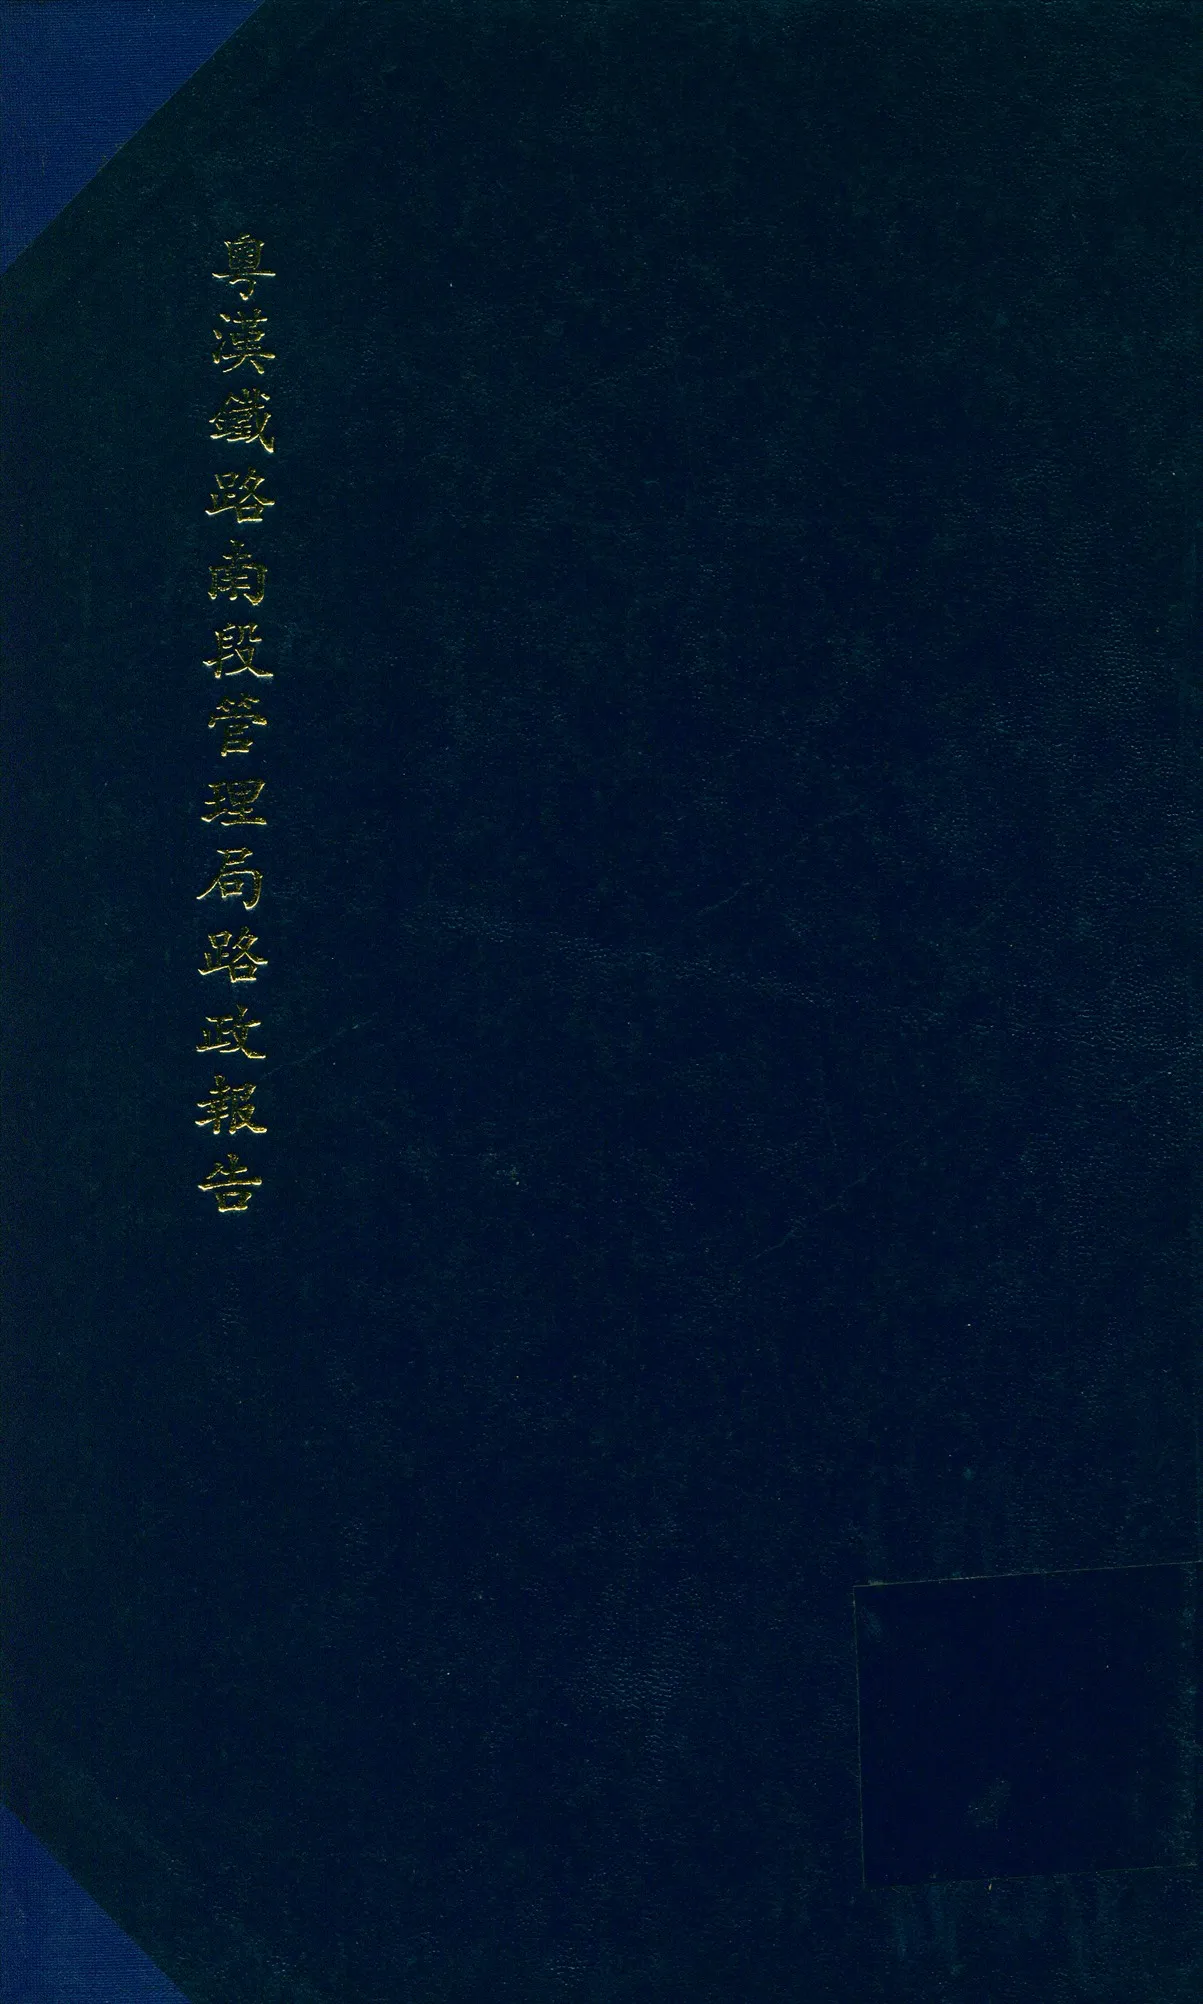 粵漢鐵路南段管理局路政報告